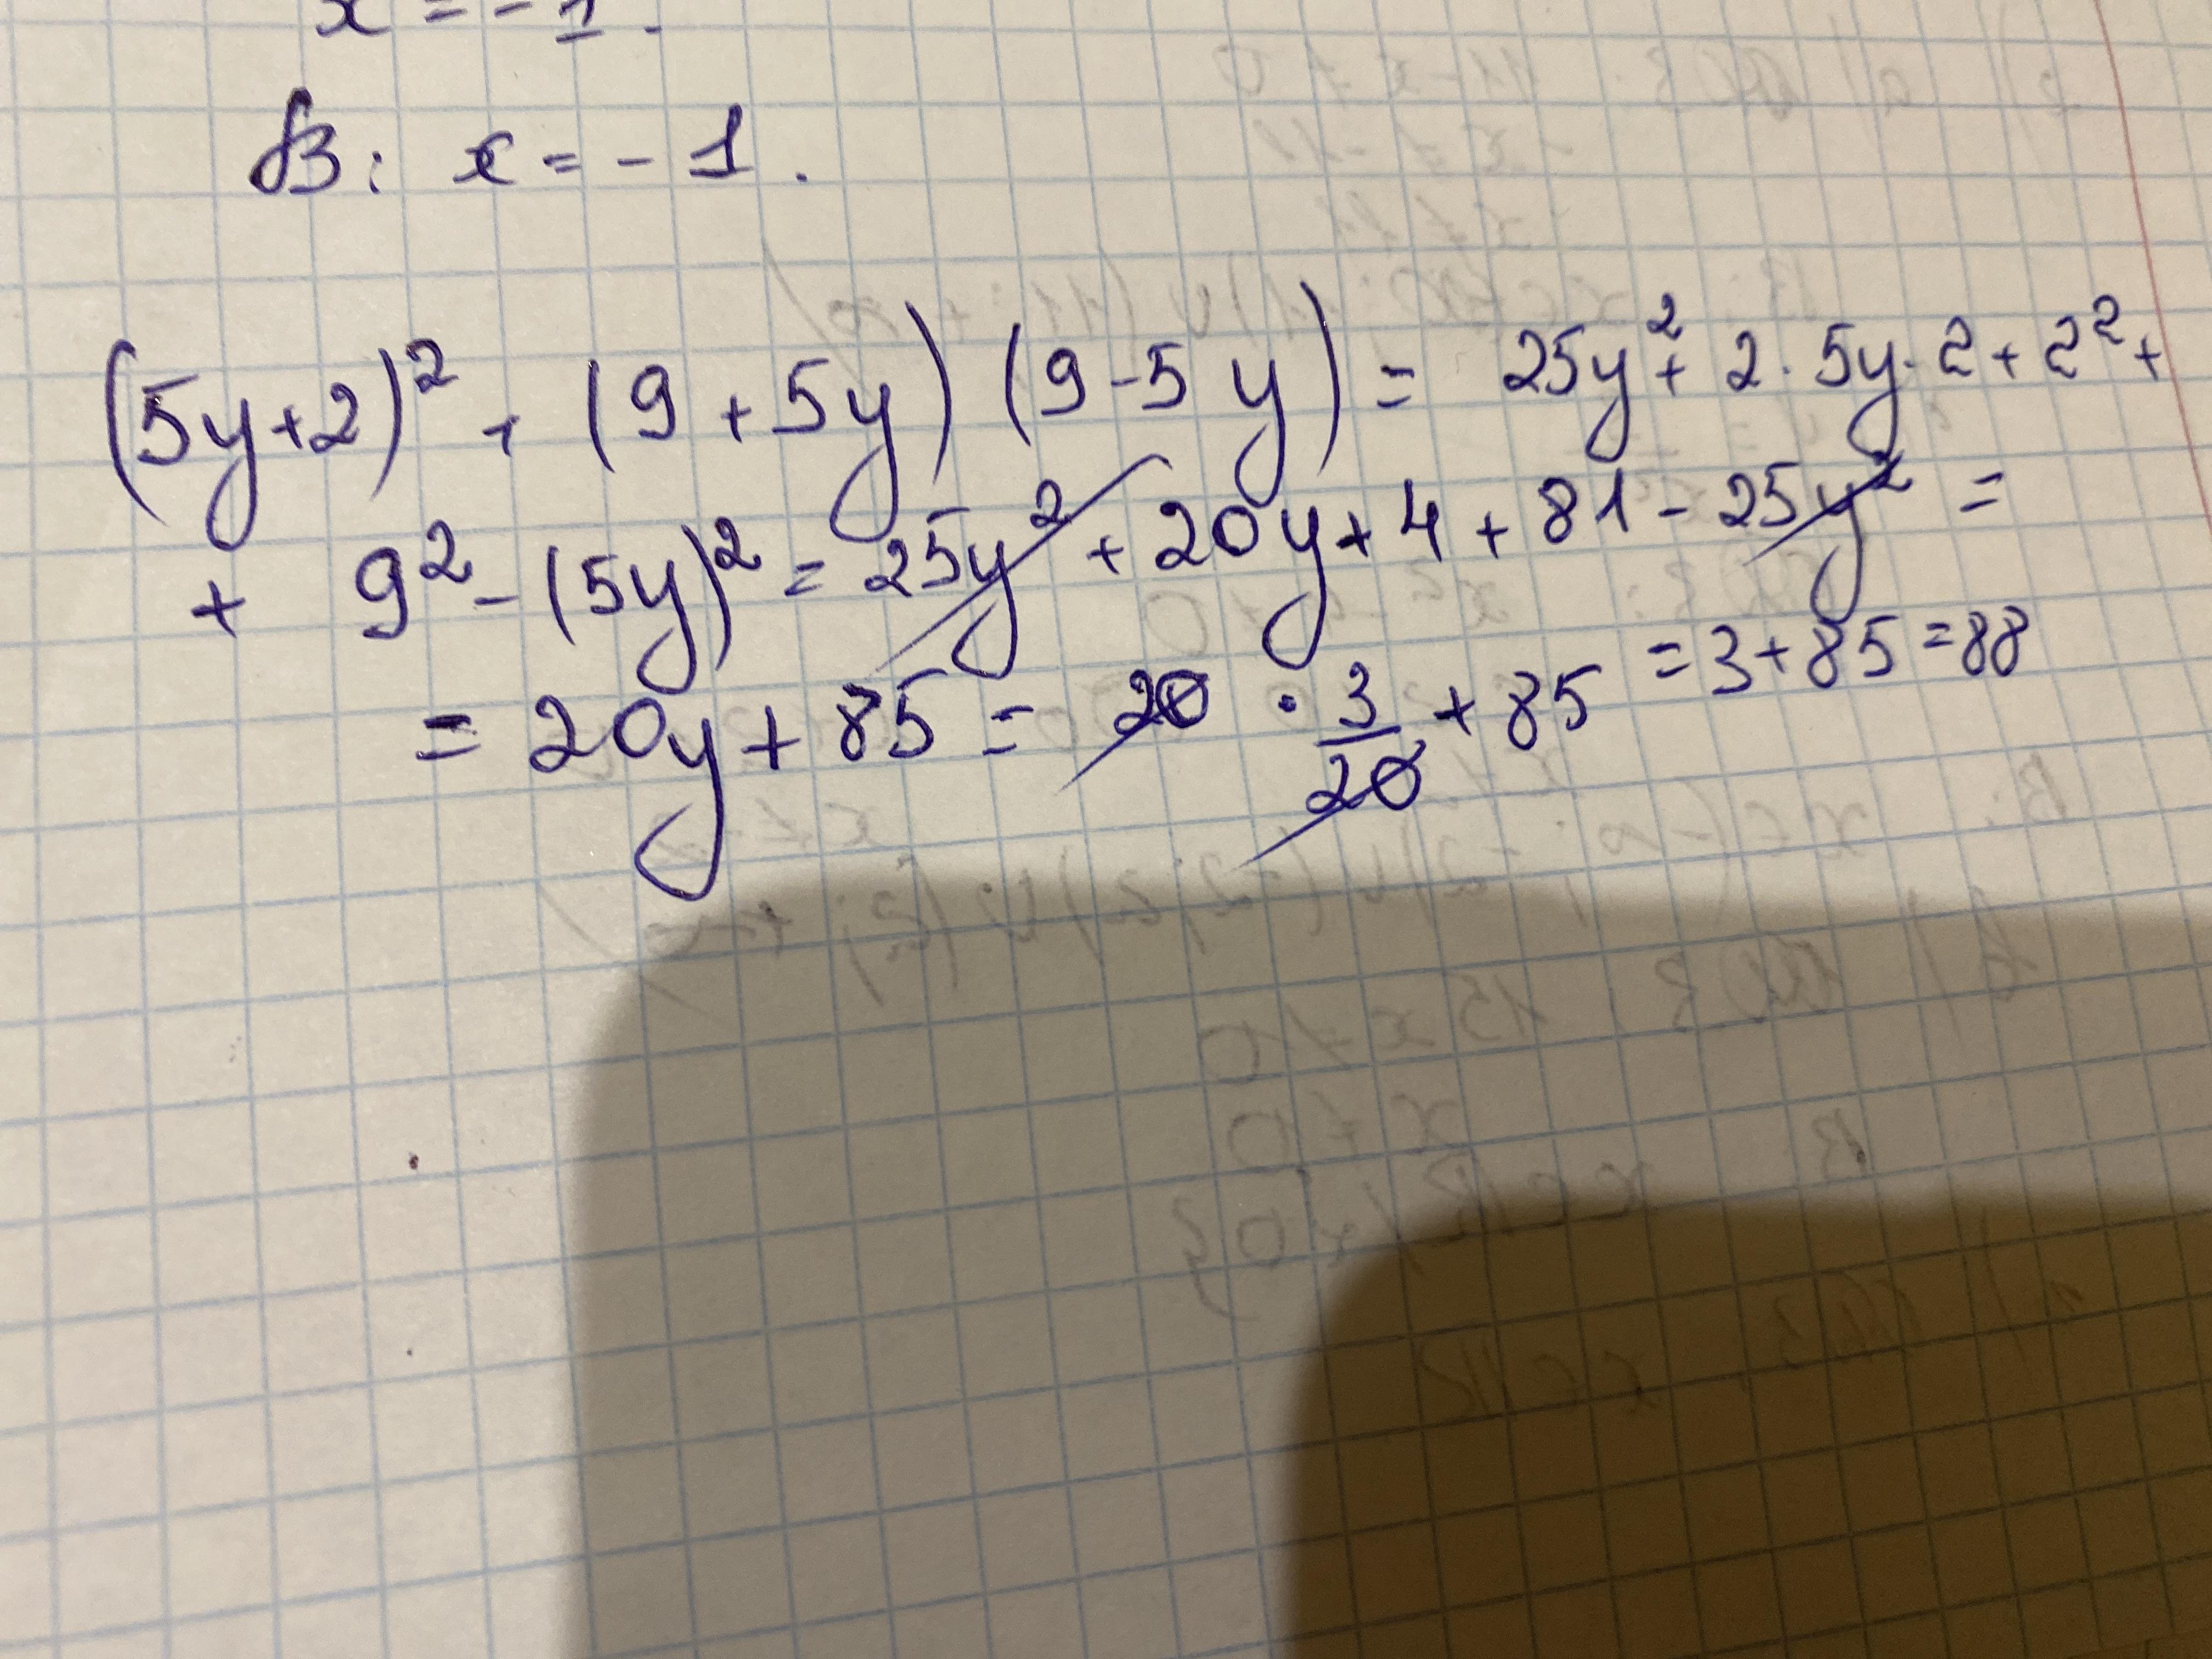 x = -1.
В: x = - 1.
(5y+2)² + (9+5y)(9-5y) = 25y² + 2·5y·2 + 2² +
+ 9² - (5y)² = 25y² + 20y + 4 + 81 - 25y² =
= 20y + 85 = 20 · 3/20 + 85 = 3 + 85 = 88